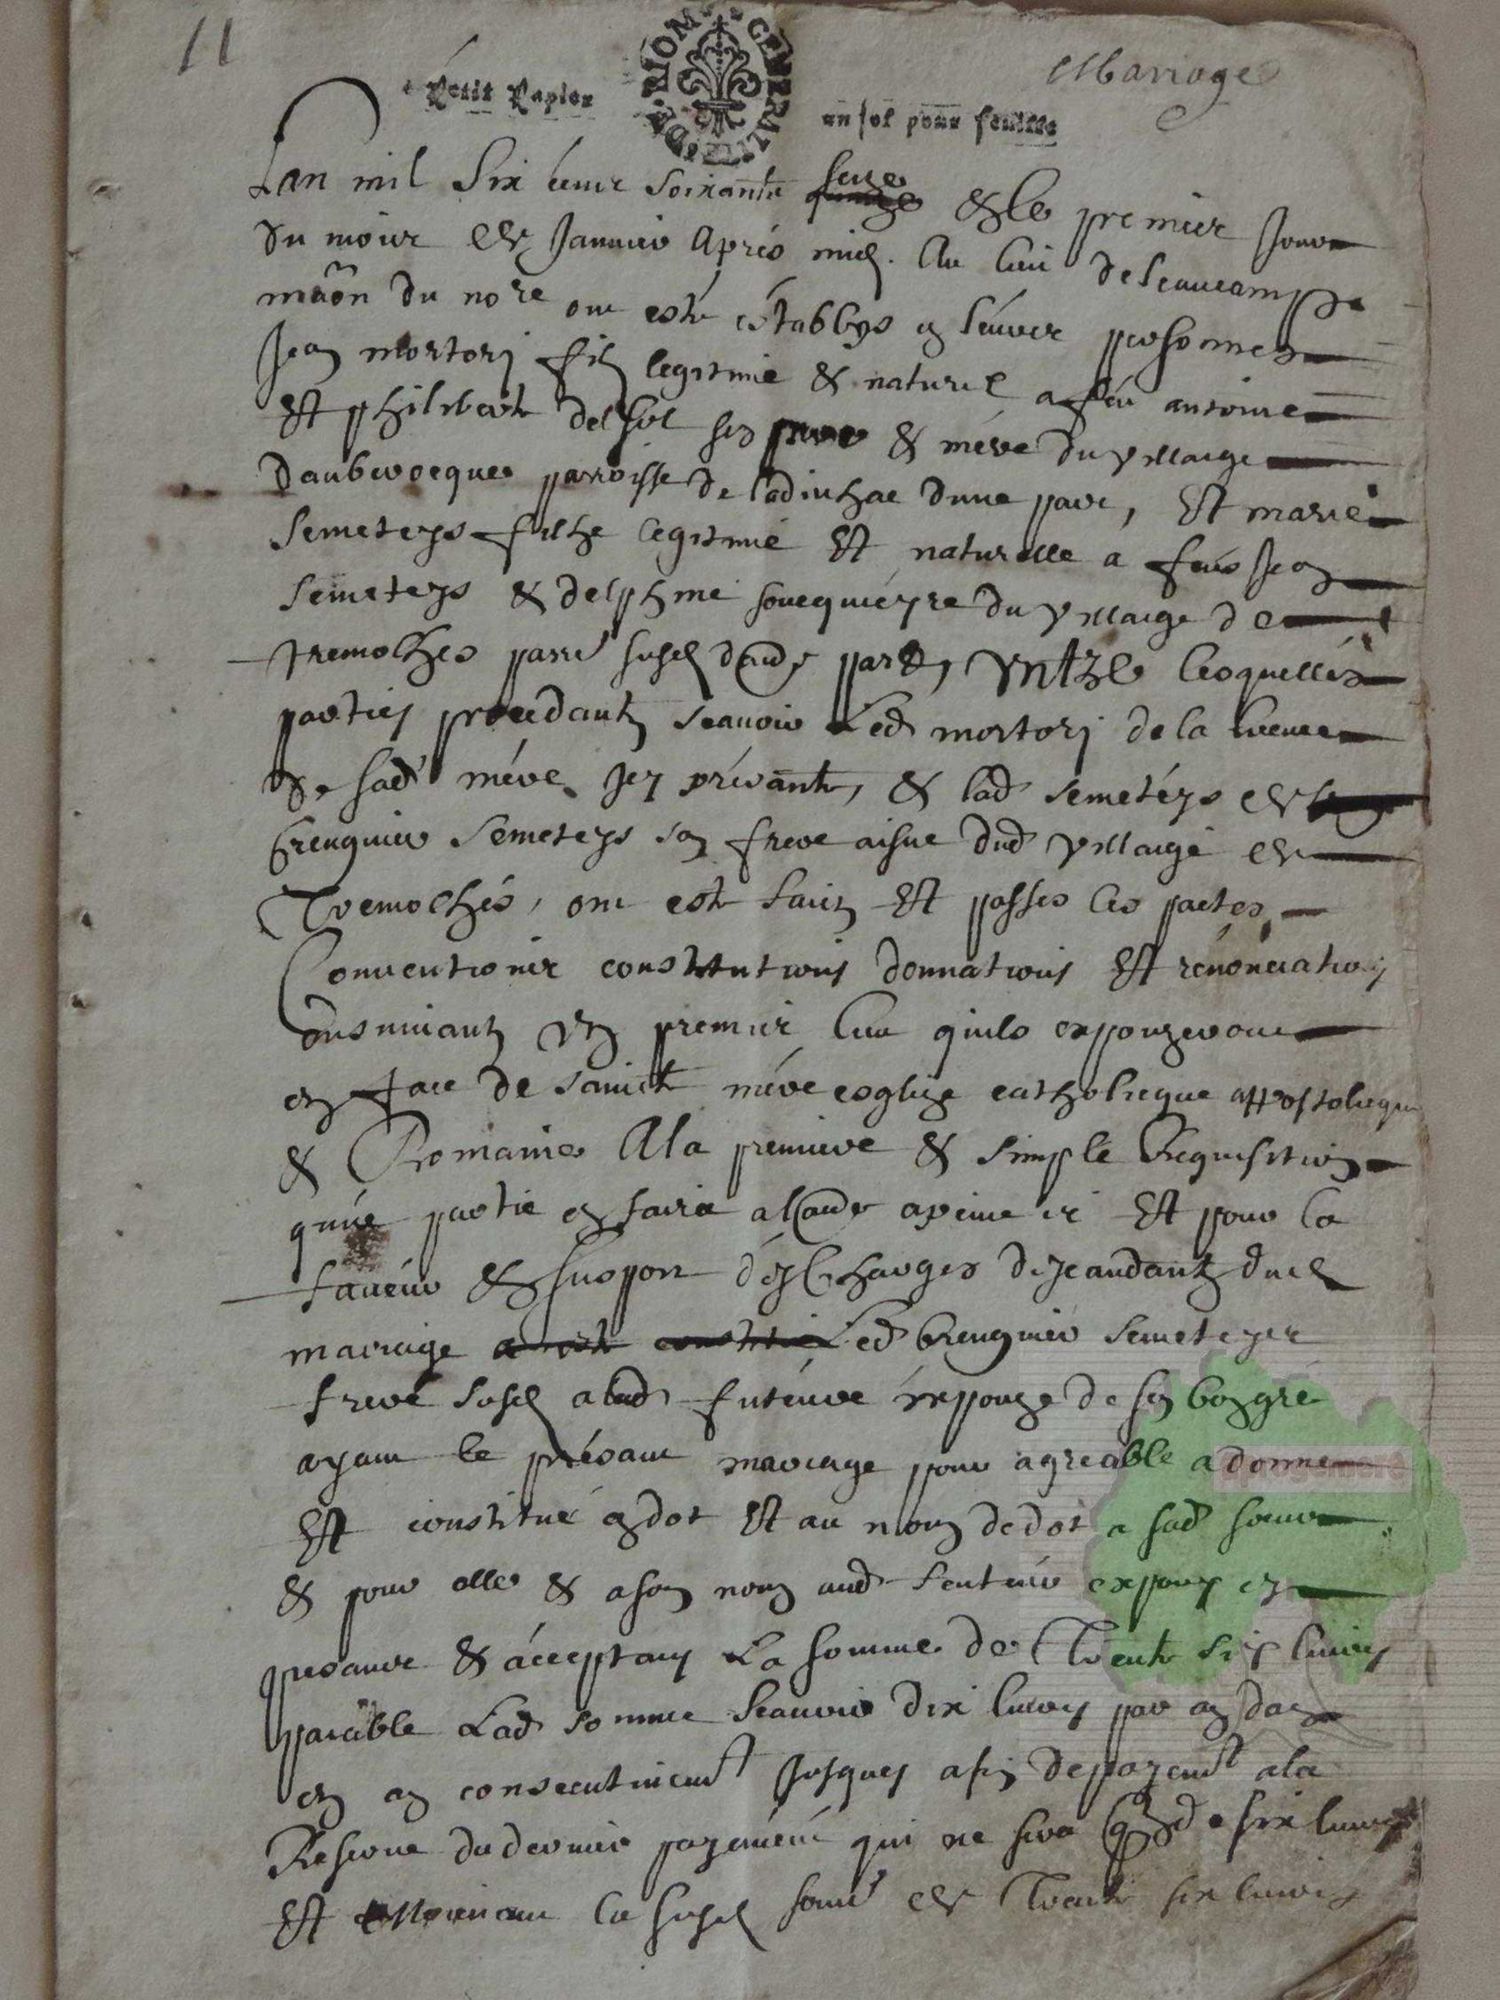 11
Mariage
Petit Papier
GENERALITE DE RIOM
un sol pour feuille
Lan mil six cens soixante seize & le premier jour
du mois de Janvier apres midy. Au lieu de
maon du nore ont esté establys en leurs persomes
Jean mortory filz legitime & naturel a feu antoine
Et philiberte delhol ses pere & mere du villaige
daubrocques parroisse de ladinhac dune part, Et marie
Semeteys filhe legitime Et naturelle a feus Jean
Semeteys & delphine soucquieyre du villaige de
tremolhes parre susd daude part, Entre lesquelles
parties procedants scavoir Led mortory de la licence
de sad mere icy présante, & lad semetéys de
breuguier Semeteys son frere aisne dud villaige de
Tremolhés, ont esté faictz Et passes les pactes
Conventions constitutions donnations Et rénonciations
ensuivantz En premier lieu quils espouzeront
en face de saincte mére esglize catholicque appostolicque
& Romaine Ala premiere & simple Requisition
qune partie en faira alaude apeine ec Et pour la
faveur & suspport des Charges dud
mariage Led breuguier semeteyes
frere susd alad futeure expouze de son bon gré
ayant le présant mariage pour agreable a donne
Et constitué en dot Et au nom de dot a sad soeur
& pour elle & a son nom aud feuteur expoux cy
presant & acceptant La somme de Trente six livres
paiable Lad somme scavoir dix livres par an dan
en an consecutivemt jusques afin de payemt ala
Reserve du dernier payement qui ne sera que de six livres
Et moienant la susd some de Trente six livres